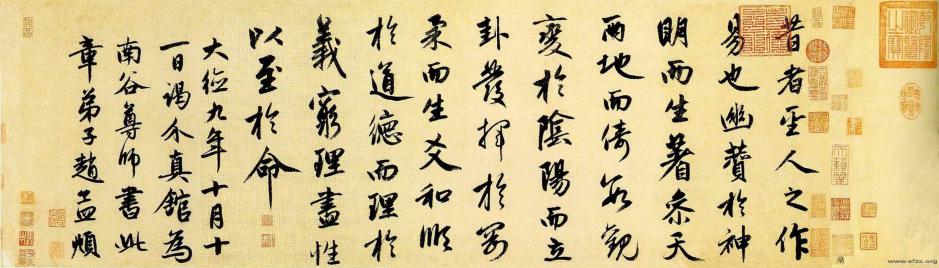 昔者聖人之作
易也幽贊於神
明而生蓍參天
兩地而倚數觀
變於陰陽而立
卦發揮於剛
柔而生爻和順
於道德而理於
義窮理盡性
以至於命
大德九年十月十
一日謁介真館為
南谷尊師書此
章弟子趙孟頫
www.sfzx.org